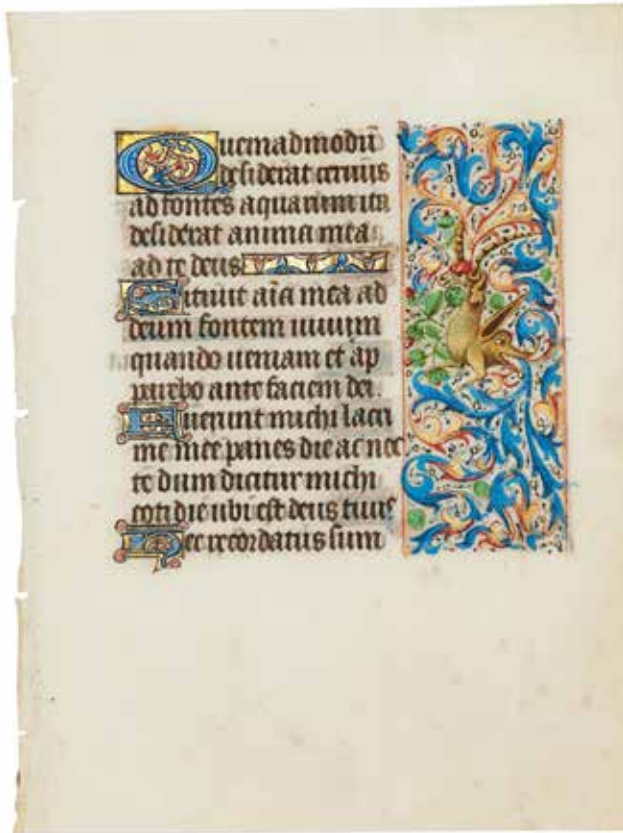 Quemadmodū
desiderat ceruus
ad fontes aquarum ita
desiderat anima mea
ad te deus
Sitiuit aīa mea ad
deum fontem uiuum
quando ueniam et ap
parebo ante faciem dei
Fuerunt michi lacri
me mee panes die ac noc
te dum dicitur michi
cotidie ubi est deus tuus
Hec recordatus sum